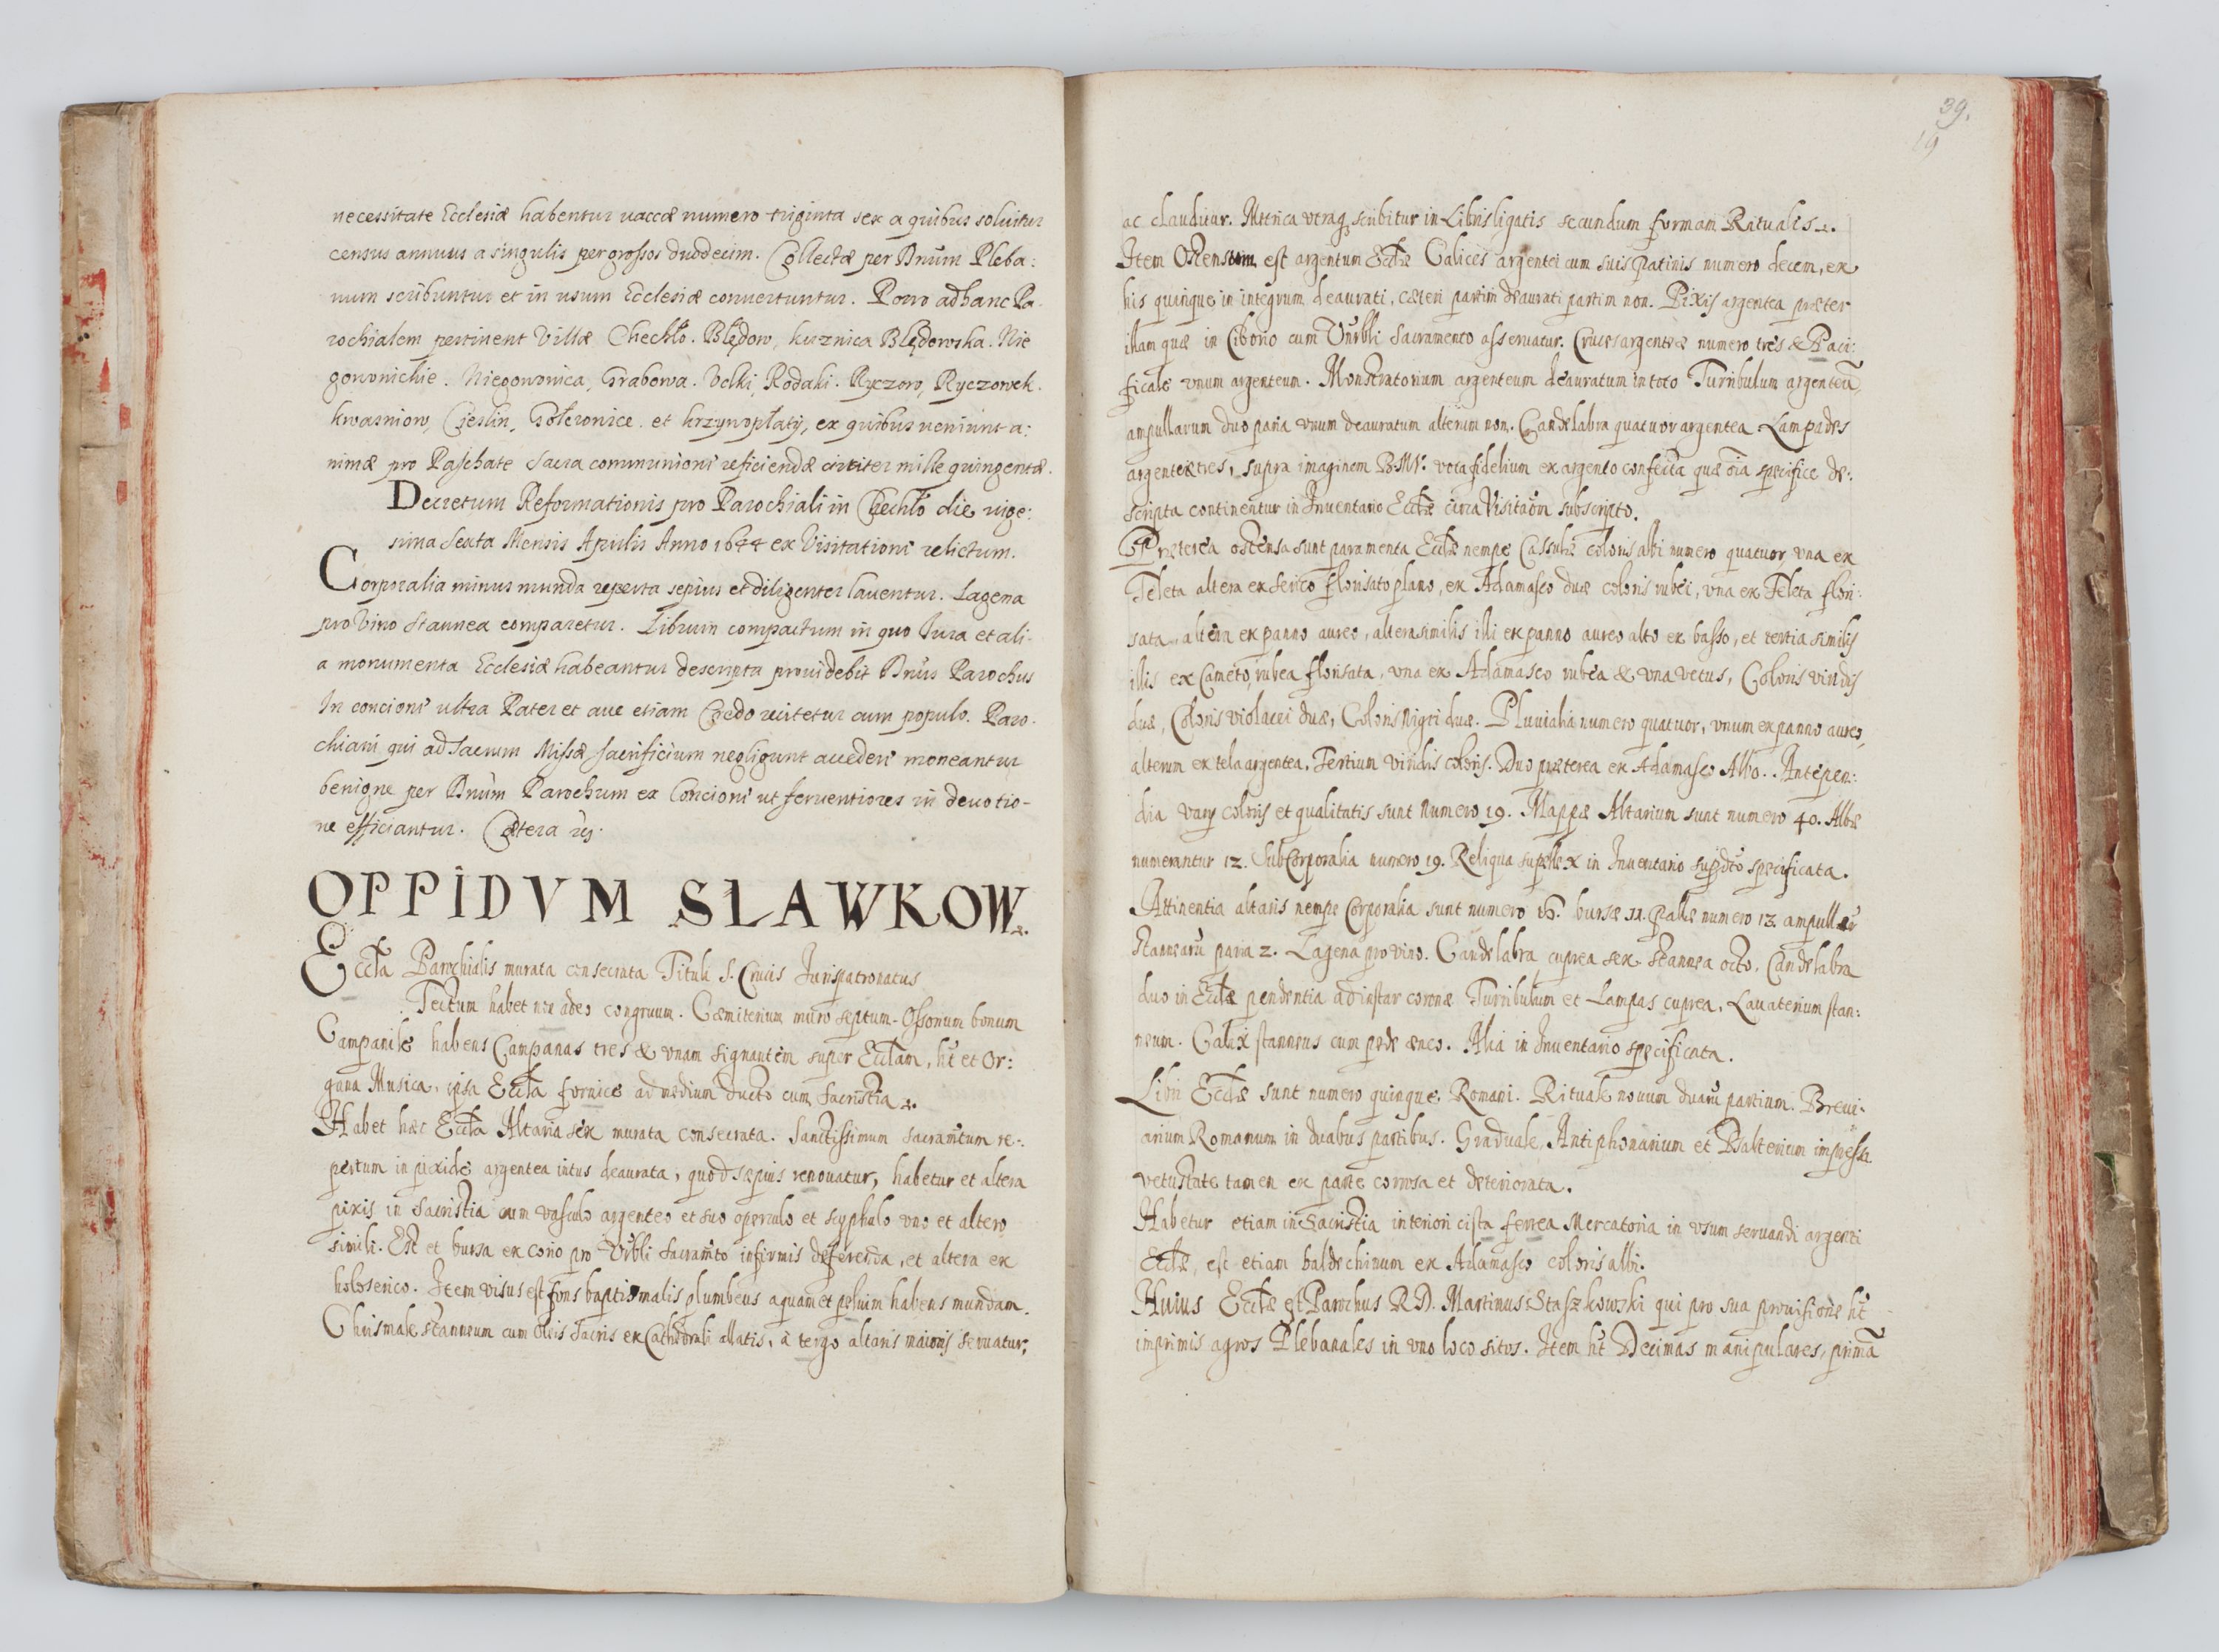 necessitate Ecclesiæ habentur uaccæ numero triginta sex a quibus soluitur
census annuus a singulis per grossos duodecim. Collectæ per Dnum Pleba:
num scribuntur et in usum Ecclesiæ conuertuntur. Porro ad hanc Pa-
rochialem pertinent Villæ Chechło. Błędow, kuznica Błędowska. Nie
gowonichie. Niegowonica, Grabowa. Volki, Rodaki. Ryczow, Ryczowek.
kwasniow, Cieslin, Golczowice. et krzywopłaty, ex quibus ueniunt a:
nimæ pro Paschate sacra communioni reficiendæ circiter mille quingentæ.
Decretum Reformationis pro Parochiali in Chechło die uige:
sima sexta Mensis Aprilis Anno 1644 ex Visitatione relictum.
Corporalia minus munda reperta sepius et diligenter lauentur. Lagena
pro Vino stannea comparetur. Librum compactum in quo Iura et ali-
a monumenta Ecclesiæ habeantur descripta prouidebit Dnus Parochus
In concione ultra Pater et aue etiam Credo recitetur cum populo. Paro-
chiani qui ad sacrum Missæ sacrificium negligunt accedere moneantur
benigne per Dnum Parochum ex Concione ut feruentiores in deuotio-
ne efficiantur. Cætera
OPPIDVM SLAWKOW.
Eccła Parochialis murata consecrata Tituli S. Crucis Jurispatronatus
Tectum habet non adeo congruum. Cæmiterium muro septum. Ossorium bonum
Campanile habens Campanas tres & vnam signantem super Ecclam, ht et Or:
gana Musica, ipsa Eccła fornice ad medium ducto cum Sacristia.
Habet hæc Eccła Altaria sex murata consecrata. Sanctissimum sacramtum re-:
pertum in pixide argentea intus deaurata, quod sæpius renouatur, habetur et altera
pixis in Sacristia cum vasculo argenteo et suo operculo et scyphulo vno et altero
simili. Est et bursa ex corio pro Vnrbli Sacramto infirmis deferenda, et altera ex
holoserico. Item visus est fons baptismalis plumbeus aquam et peluim habens mundam.
Chrismale stanneum cum oleis sacris ex Cathedrali allatis, a tergo altaris maioris seruatur,
39.
19
ac clauditur. Metrica vtraq scribitur in Libris ligatis secundum formam Ritualis.
Item Ostensum est argentum Ecclæ Calices argentei cum suis Patinis numero decem, ex
his quinque in integrum deaurati, cæteri partim deaurati partim non. Pixis argentea præter
illam quæ in Ciborio cum Vnrbli Sacramento asseruatur. Cruces argenteæ numero tres & Paci:
ficale vnum argenteum. Monstratorium argenteum deauratum in toto Turribulum argenteũ,
ampullarum duo paria vnum deauratum alterum non. Candelabra quatuor argentea. Lampades
argenteæ tres, supra imaginem B.M.V. vota fidelium ex argento confecta quæ oia specifice de:
scripta continentur in Inuentario Ecclæ circa Visitaōm subscripto.
Præterea ostensa sunt paramenta Ecclæ nempe Cassulæ coloris albi numero quatuor, vna ex
Teleta altera ex serico florisato plano, ex Adamasco duæ coloris rubei, vna ex Teleta flori:
sata, altera ex panno aureo, altera similis illi ex panno aureo alto ex basso, et tertia similis
illis ex Cameto, rubea florisata, vna ex Adamasco rubea & vna vetus, Coloris viridis
duæ, Coloris violacei duæ, Coloris nigri duæ. Pluuialia numero quatuor, vnum ex panno aureo,
alterum ex tela argentea, Tertium viridis coloris. Duo præterea ex Adamasco Albo. Antepen:
dia varij coloris et qualitatis sunt numero 19. Mappæ Altarium sunt numero 40. Albæ
numerantur 12. SubCorporalia numero 19. Reliqua supellex in Inuentario supdcto specificata.
Attinentia altaris nempe Corporalia sunt numero 16. bursæ 11. Pallæ numero 13. ampullarũ
stannearũ paria 2. Lagena pro vino. Candelabra cuprea sex stannea octo. Candelabra
duo in Eccla pendentia ad instar coronæ Turribulum et Lampas cuprea, Lauaterium stan:
neum. Calix stanneus cum pede æneo. Alia in Inuentario specificata.
Libri Ecclæ sunt numero quinque Romani. Rituale nouum duarũ partium. Breui:
arium Romanum in duabus partibus. Graduale, Antiphonarium et Psalterium impressa
vetustate tamen ex parte corrosa et deteriorata.
Habetur etiam in Sacristia interiori cista ferrea Mercatoria in vsum seruandi argenti
Ecclæ, est etiam baldechinum ex Adamasco coloris albi.
Huius Ecclæ est Parochus R.D. Martinus Staszkowski qui pro sua prouisione ht
imprimis agros Plebanales in vno loco sitos. Item ht Decimas manipulares, primã